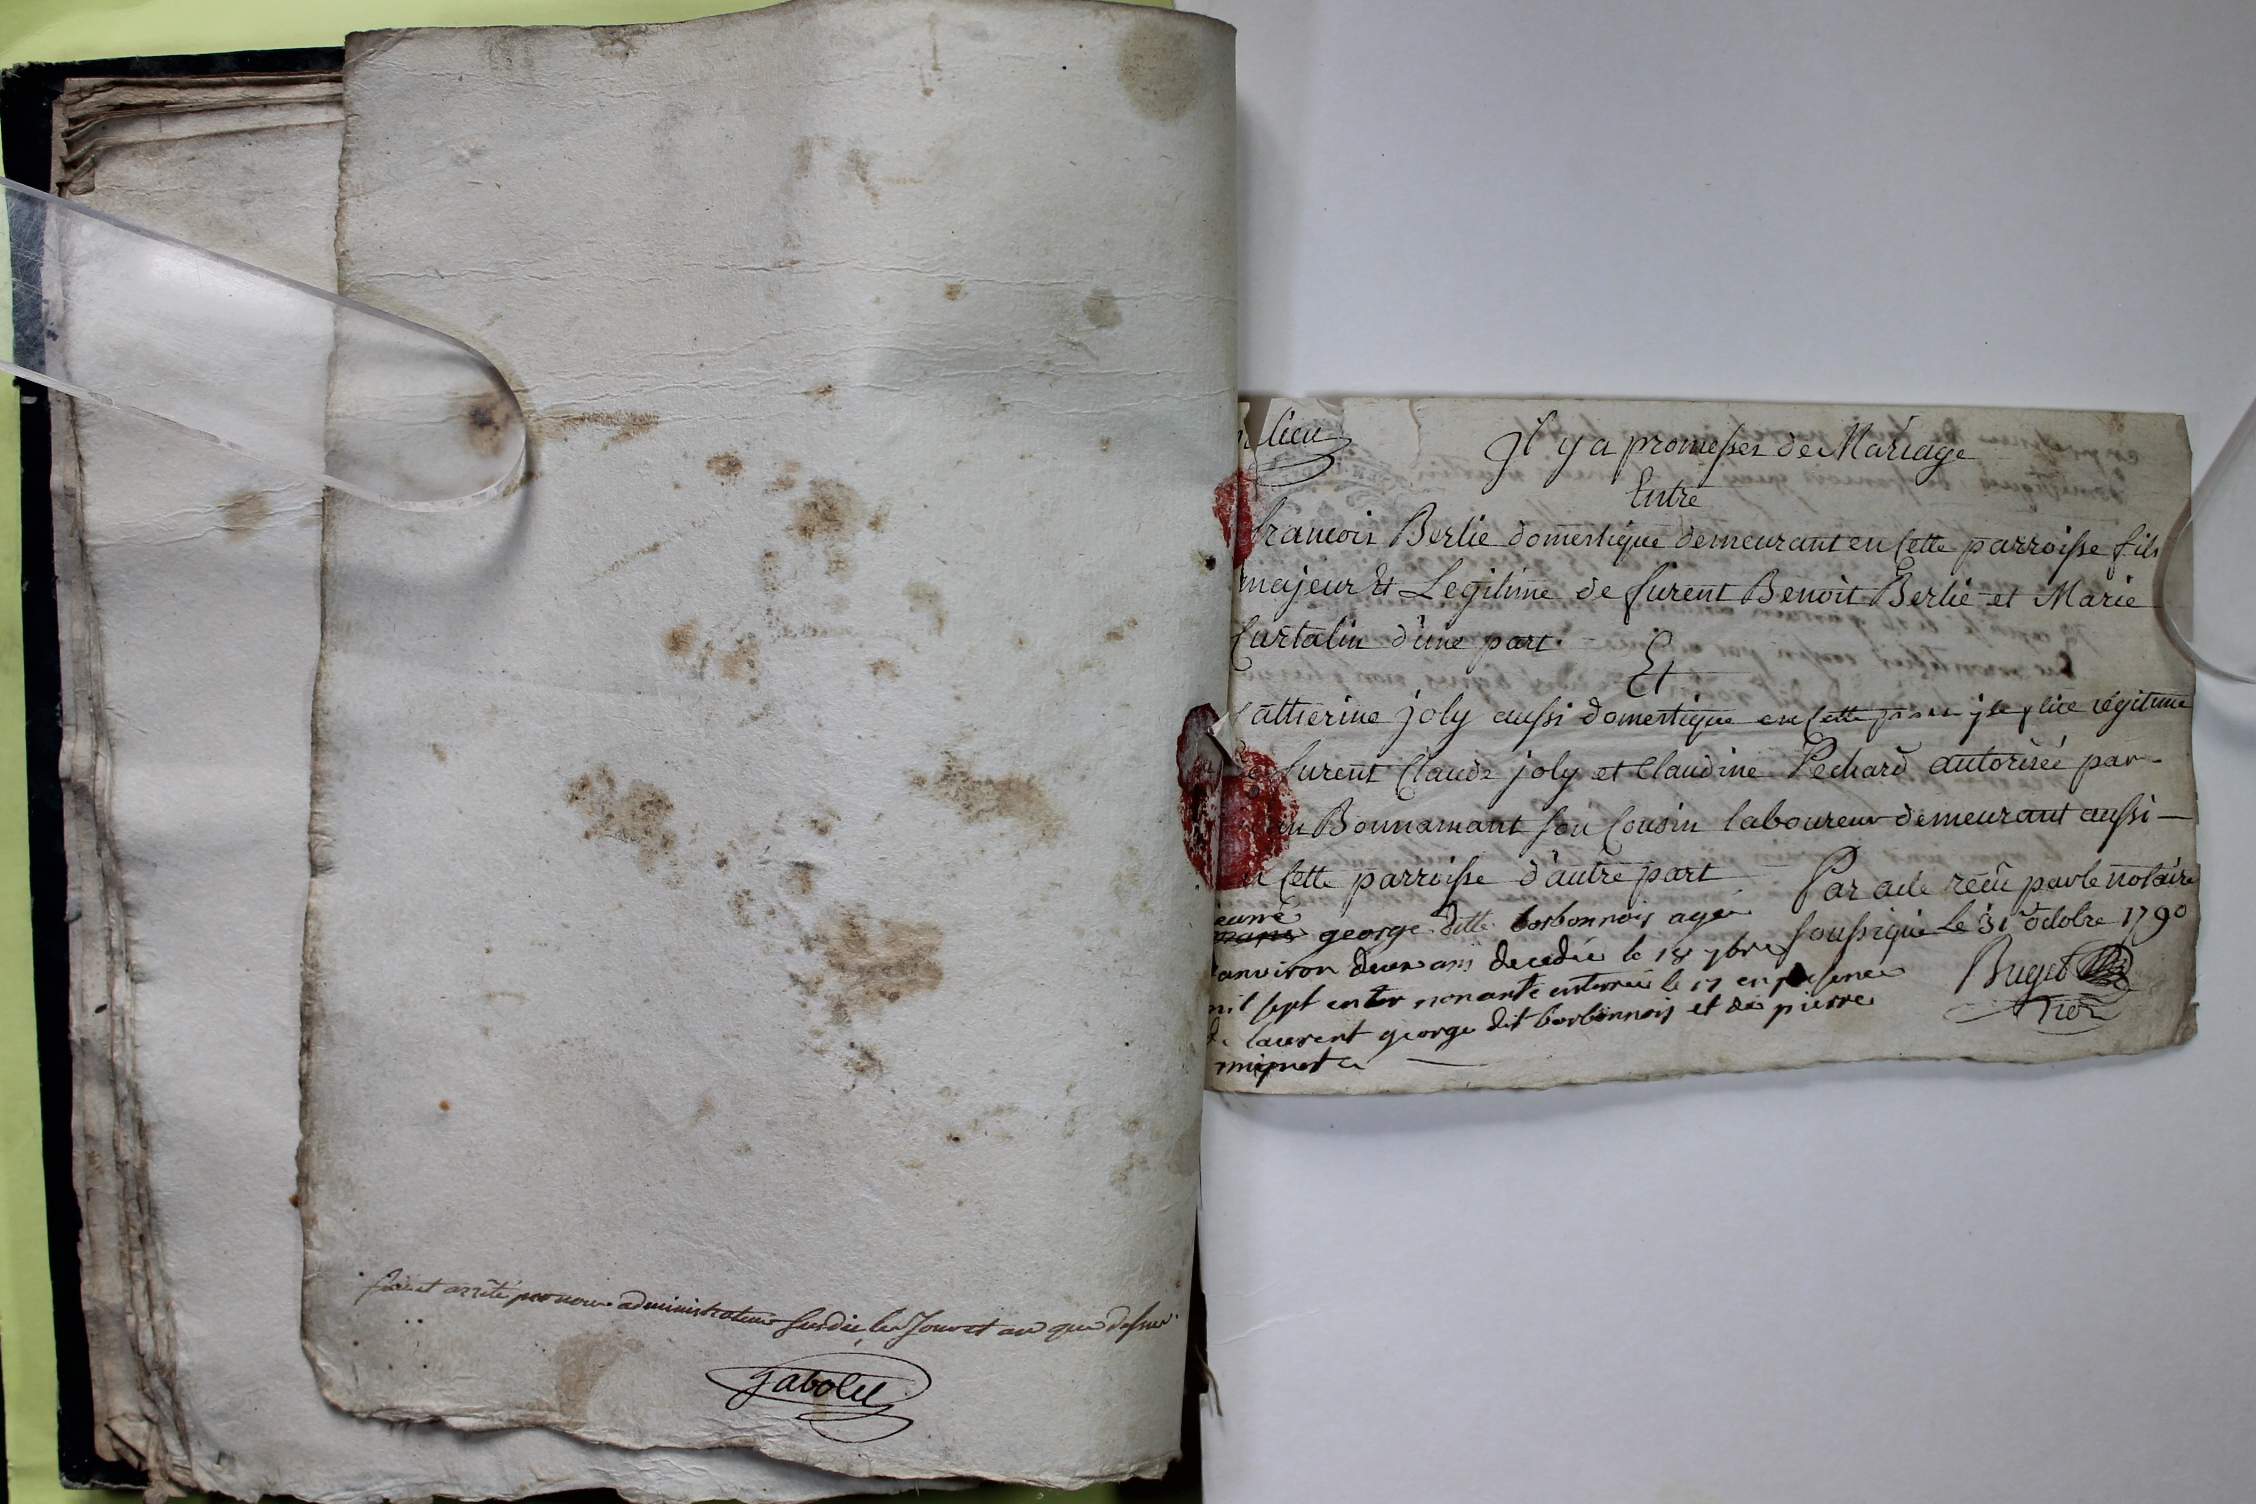 fait et arrêté par nous administrateur susdit les Jour et an que dessus
Jabolil
lieu
Il y a promesses de Mariage
Entre
francois Berlie domestique demeurant en Cette parroisse fils
majeur Et Legitime de furent Benoit Berlie et Marie
Curtalin d'une part
Et
Catherine joly aussi domestique en Cette parroisse fille légitime
de furent Claude joly et Claudine Pechard autorisée par
Bonnamant son Cousin laboureur demeurant aussi
Cette parroisse d'autre part Par acte recu par le notaire
soussigné Le 31 octobre 1790
Buget
Nore
jeanne
george ditte borbonnois agée
d'anviron deux ans decedée le 18 7bre
mil sept cent nonante enterrée le 17 en presence
de laurent george dit borbonnois et de pierre
mignot